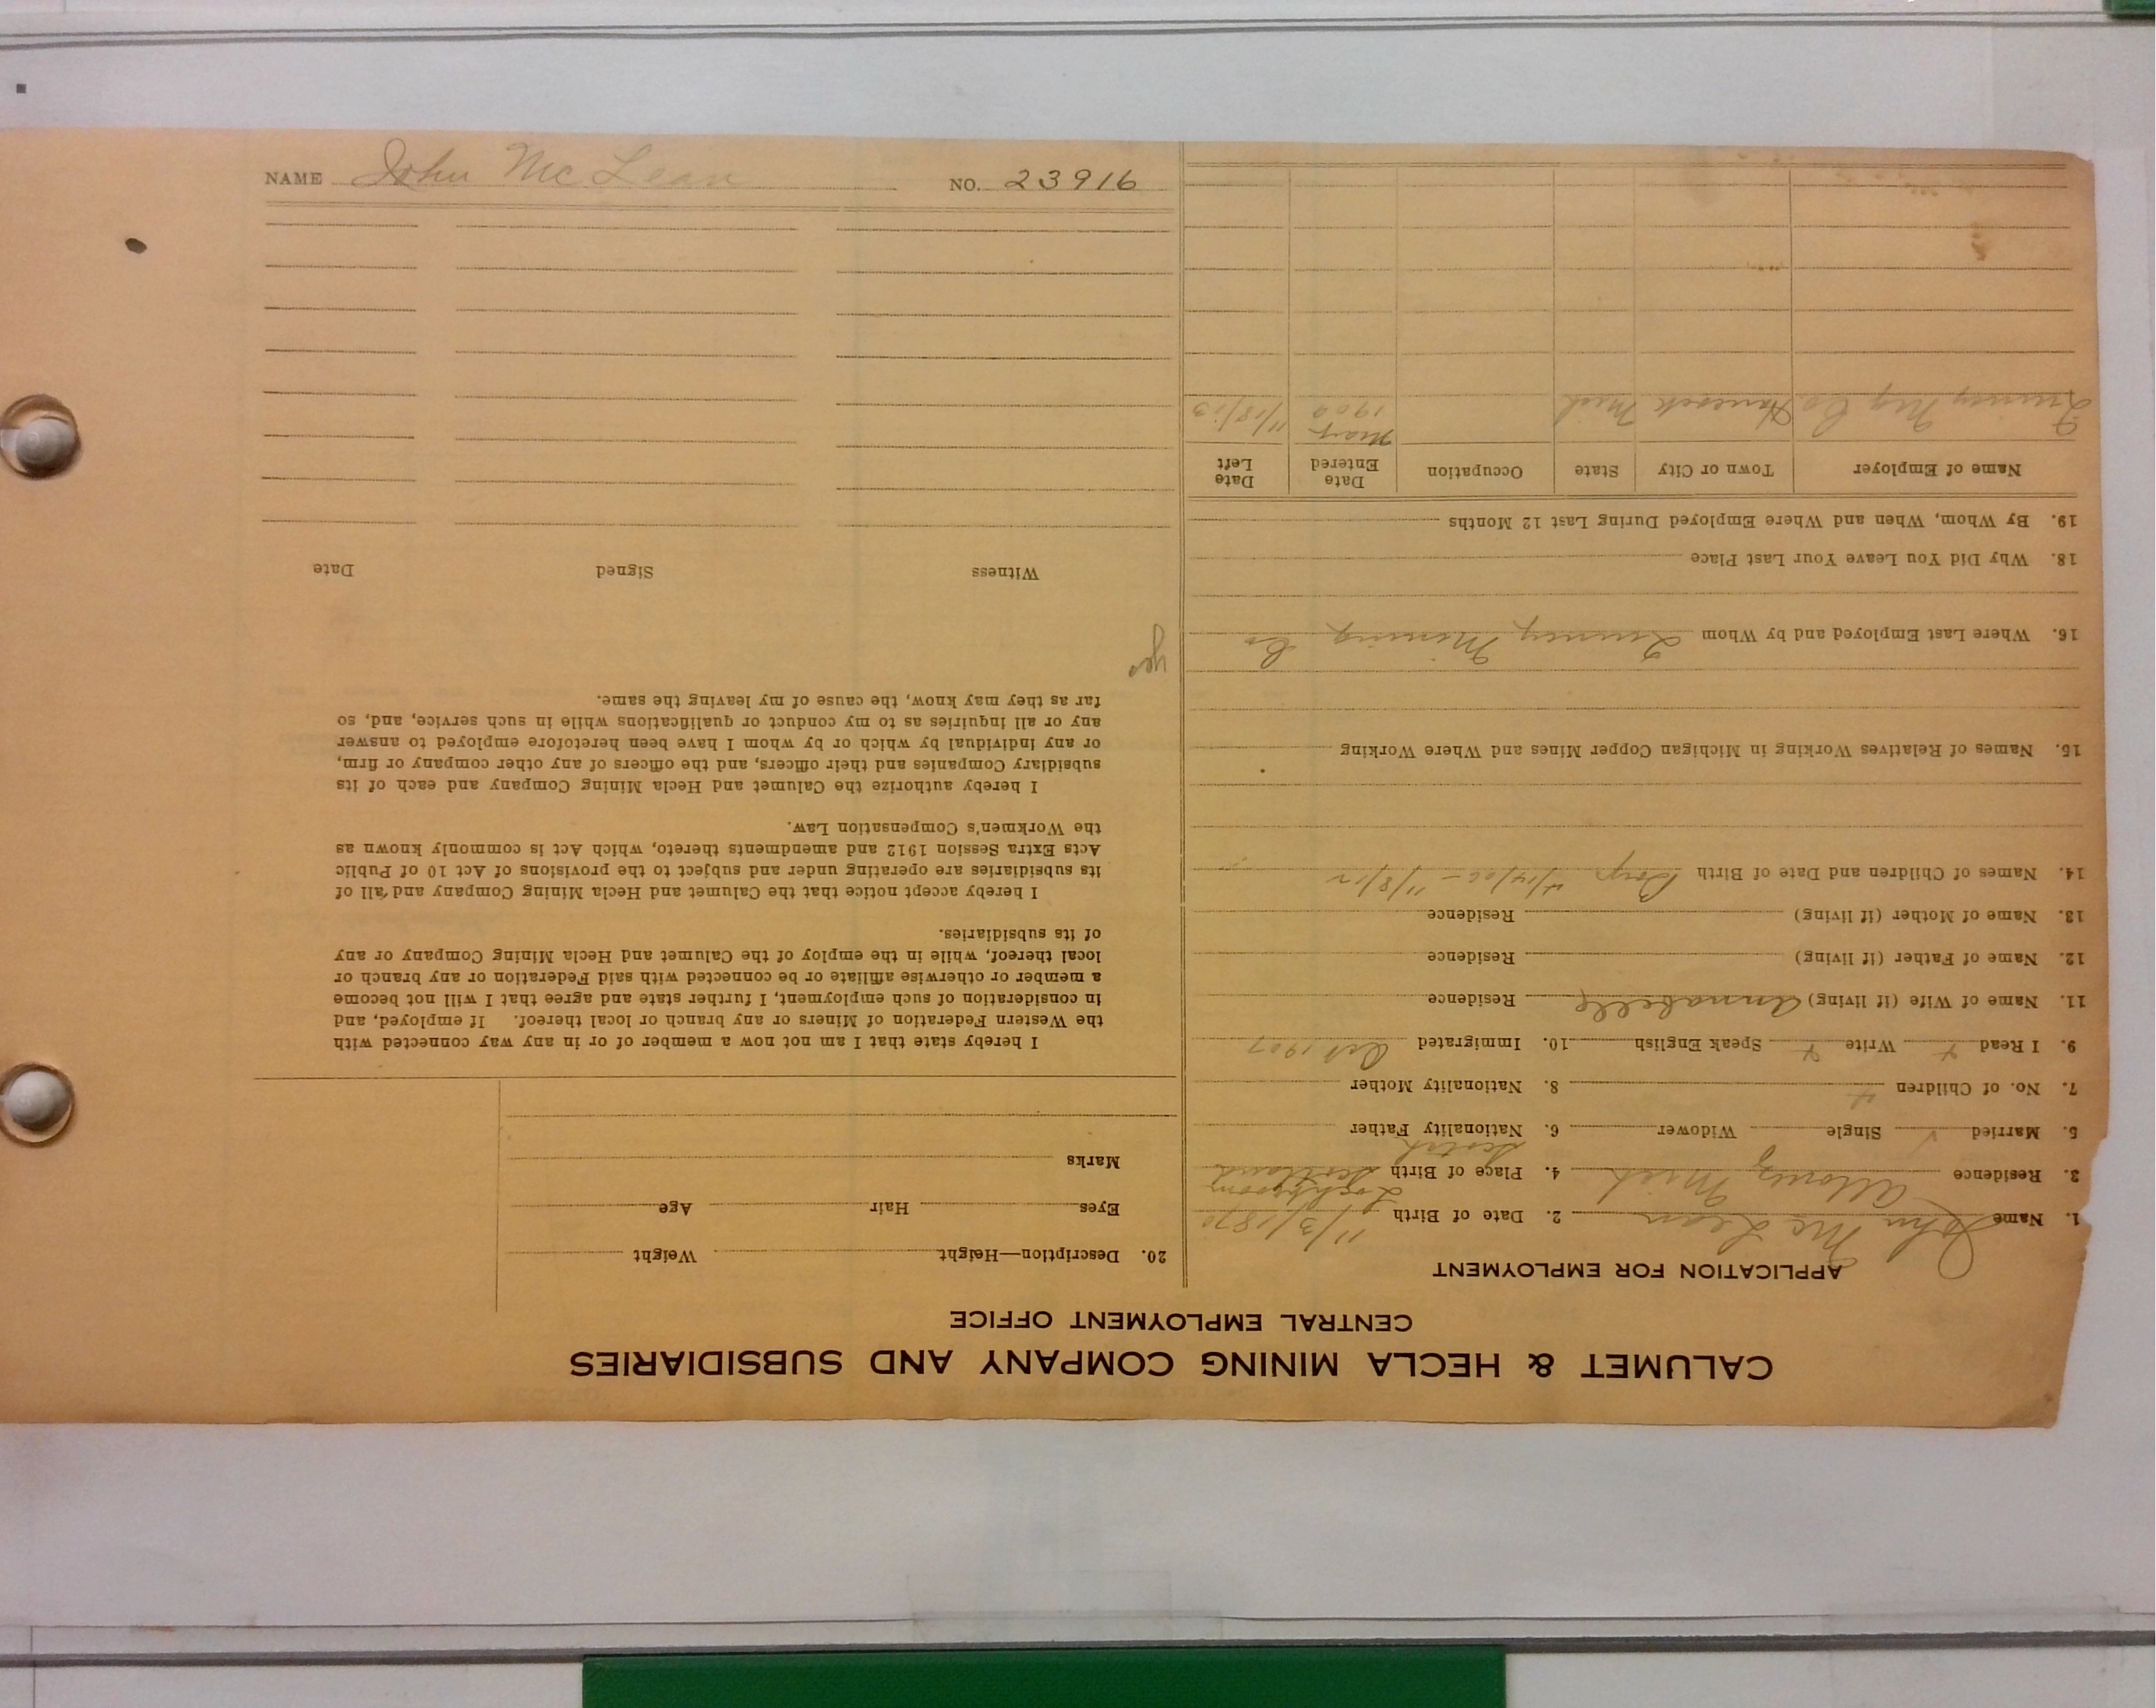 NAME John McLean NO. 23916
CALUMET & HECLA MINING COMPANY AND SUBSIDIARIES
CENTRAL EMPLOYMENT OFFICE
APPLICATION FOR EMPLOYMENT
1. Name John McLean 2. Date of Birth 11/3/1870
3. Residence Allouez Mich 4. Place of Birth Scotland
5. Married Single Widower 6. Nationality Father Scotch
7. No. of Children 8. Nationality Mother
9. I Read Write Speak English 10. Immigrated Oct 1907
11. Name of Wife (if living) Annabelle Residence
12. Name of Father (if living) Residence
13. Name of Mother (if living) Residence
14. Names of Children and Date of Birth Boys 4/14/06 - 11/8/12
15. Names of Relatives Working in Michigan Copper Mines and Where Working
16. Where Last Employed and by Whom Quincy Mining Co
18. Why Did You Leave Your Last Place
19. By Whom, When and Where Employed During Last 12 Months
Name of Employer Town or City State Occupation Date Entered Date Left
Quincy Mg Co Hancock Mich 11/18/13
20. Description—Height Weight
Eyes Hair Age
Marks
I hereby state that I am not now a member of or in any way connected with
the Western Federation of Miners or any branch or local thereof. If employed, and
in consideration of such employment, I further state and agree that I will not become
a member or otherwise affiliate or be connected with said Federation or any branch or
local thereof, while in the employ of the Calumet and Hecla Mining Company or any
of its subsidiaries.
I hereby accept notice that the Calumet and Hecla Mining Company and all of
its subsidiaries are operating under and subject to the provisions of Act 10 of Public
Acts Extra Session 1912 and amendments thereto, which Act is commonly known as
the Workmen's Compensation Law.
I hereby authorize the Calumet and Hecla Mining Company and each of its
subsidiary Companies and their officers, and the officers of any other company or firm,
or any individual by which or by whom I have been heretofore employed to answer
any or all inquiries as to my conduct or qualifications while in such service, and, so
far as they may know, the cause of my leaving the same.
Witness Signed Date